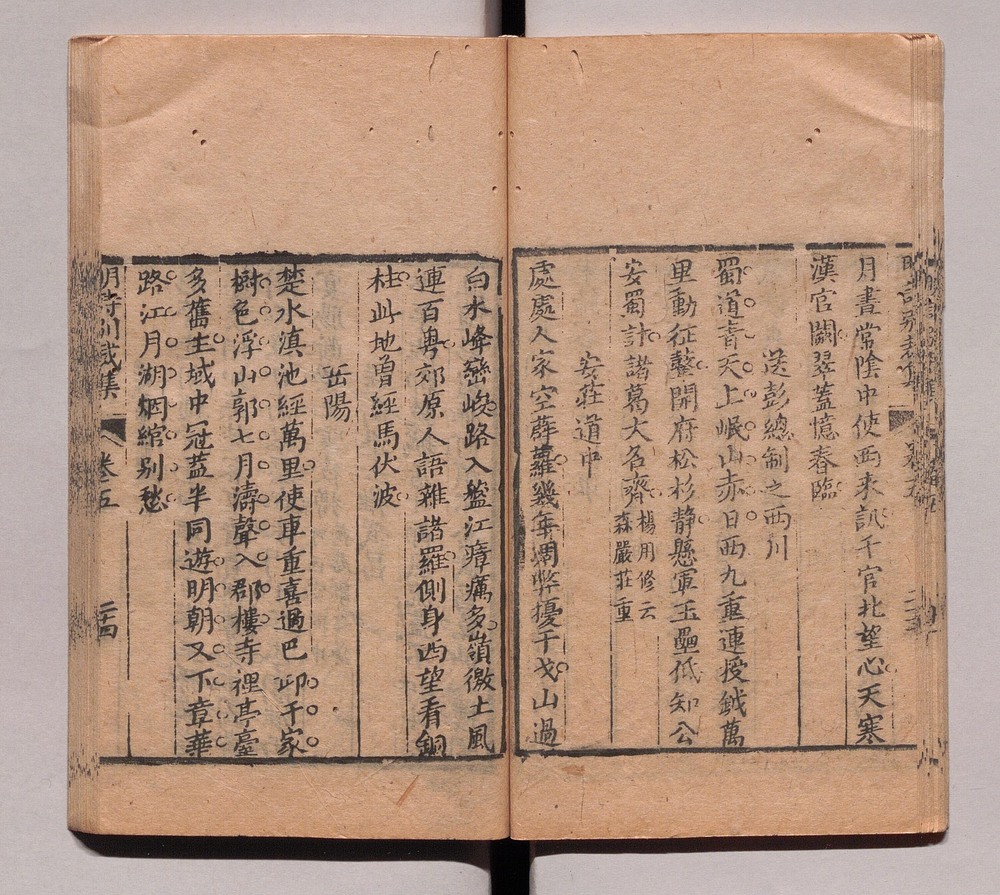 月晝常陰中使西來訊千官北望心天寒
漢官闕翠蓋憶春臨
送彭總制之西川
蜀道青天上岷山赤日西九重連授鉞萬
里動征鼙開府松杉靜懸軍玉壘低知公
安蜀計諸葛大名齊楊用修云
森嚴莊重
安莊道中
處處人家空薜蘿幾年凋弊擾干戈山過
白水峰巒峻路入盤江瘴癘多嶺徼土風
連百粵郊原人語雜諸羅側身西望看銅
柱此地曾經馬伏波
岳陽
楚水滇池經萬里使車重喜過巴卭千家
樹色浮山郭七月濤聲入郡樓寺裡亭臺
多舊主域中冠蓋半同遊明朝又下章華
路江月湖烟綰別愁
明詩別裁集
卷五
二十四